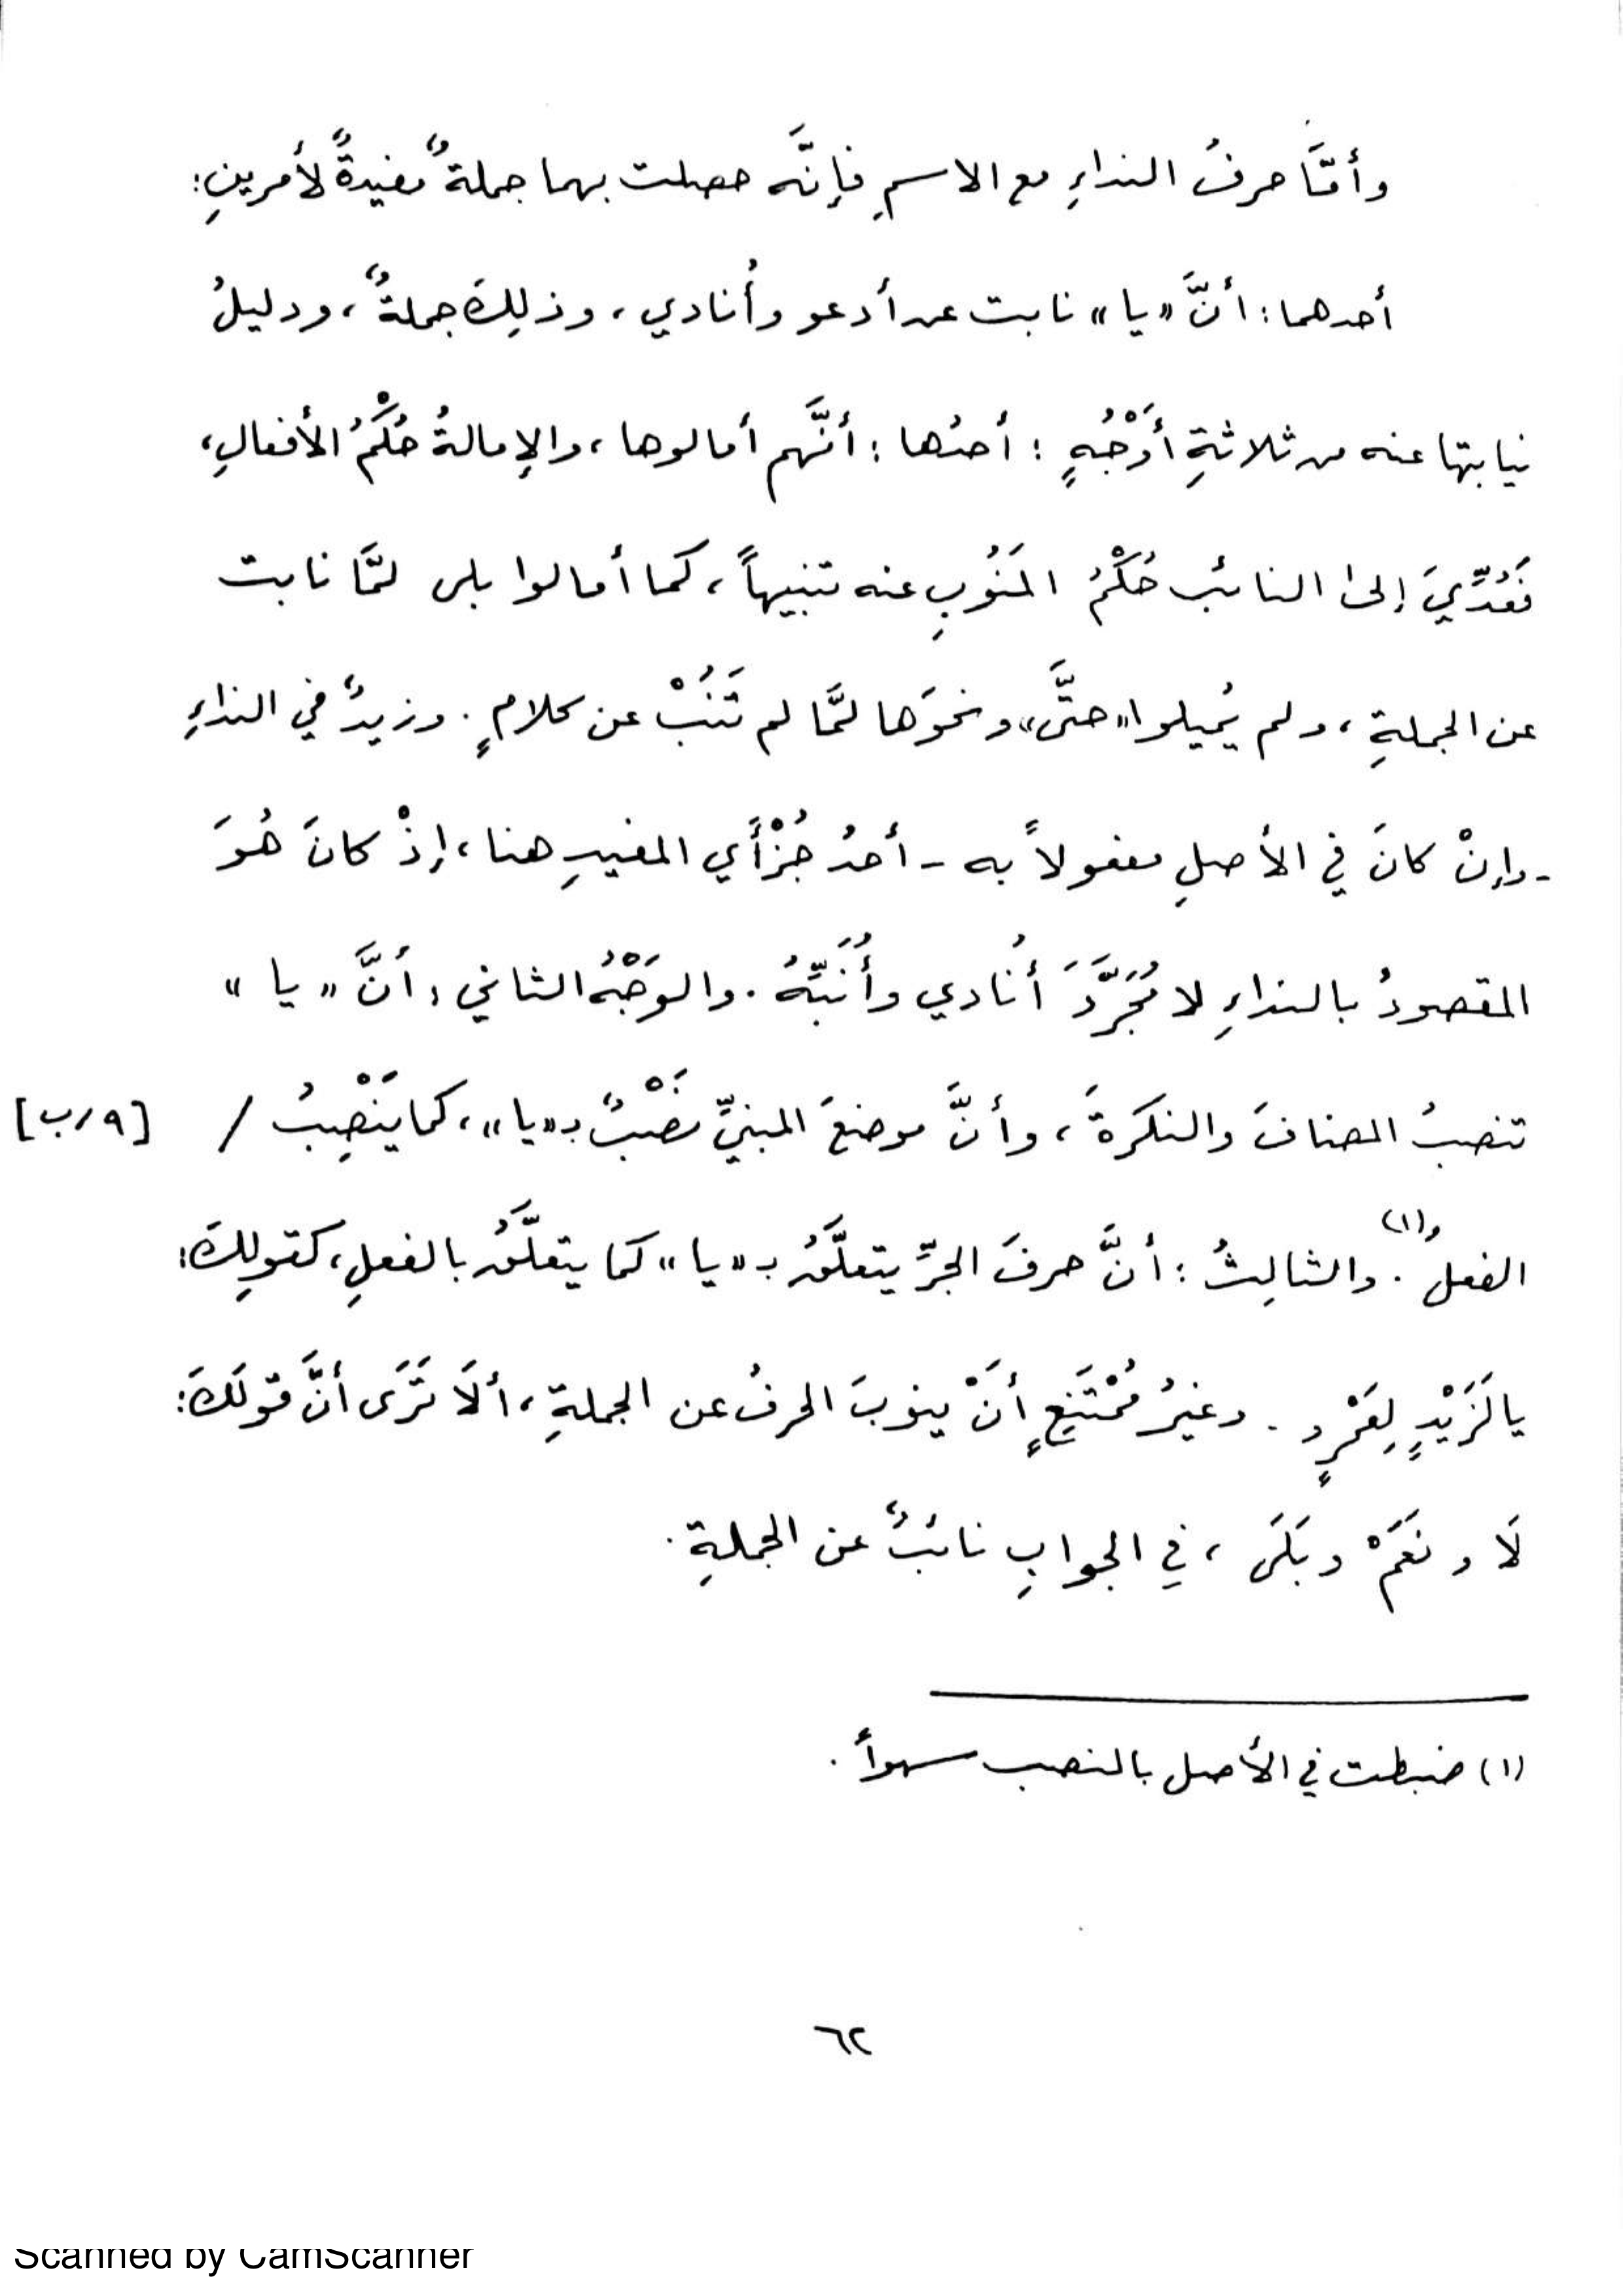 وأمَّا حرفُ النداءِ مع الاسمِ فإنَّه حصلت بهما جملةٌ مفيدةٌ لأمرينِ:
أحدهما: أنَّ «يا» نابت عن أدعو وأُنادي، وذلِكَ جملةٌ، ودليلُ
نيابتها عنه من ثلاثةِ أَوْجُهٍ: أحدُها: أنَّهم أمالوها، والإمالةُ حُكْمُ الأفعالِ،
فَعُدِّيَ إلى النائب حُكْمُ المَنُوبِ عنه تنبيهاً، كما أمالوا بلى لمَّا نابت
عن الجملةِ، ولم يُميلوا «حتَّى» ونحوَها لمَّا لم تَنُبْ عن كلامٍ. وزيدٌ في النداءِ
- وإنْ كانَ في الأصلِ مفعولاً به - أحدُ جُزْأَي المفيدِ هنا، إذْ كانَ هُوَ
المقصودُ بالنداءِ لا مُجَرَّدَ أُنادي وأُنَبِّهُ. والوَجْهُ الثاني: أنَّ «يا»
تنصبُ المضافَ والنكرَةَ، وأنَّ موضعَ المبنيِّ نَصْبٌ بـ«يا»، كما يَنْصِبُ / [٩/ب]
الفعلُ(١). والثالِثُ: أنَّ حرفَ الجرِّ يتعلَّقُ بـ «يا» كما يتعلَّقُ بالفعلِ، كقولِكَ:
يا لَزَيْدٍ لِعَمْرٍو. وغيرُ مُمْتَنِعٍ أَنْ ينوبَ الحرفُ عن الجملةِ، ألَا تَرَى أنَّ قولَكَ:
لَا ونَعَمْ وبَلَى، في الجوابِ نائبٌ عن الجملةِ.
(١) ضبطت في الأصل بالنصب سهواً.
٦٢
Scanned by CamScanner